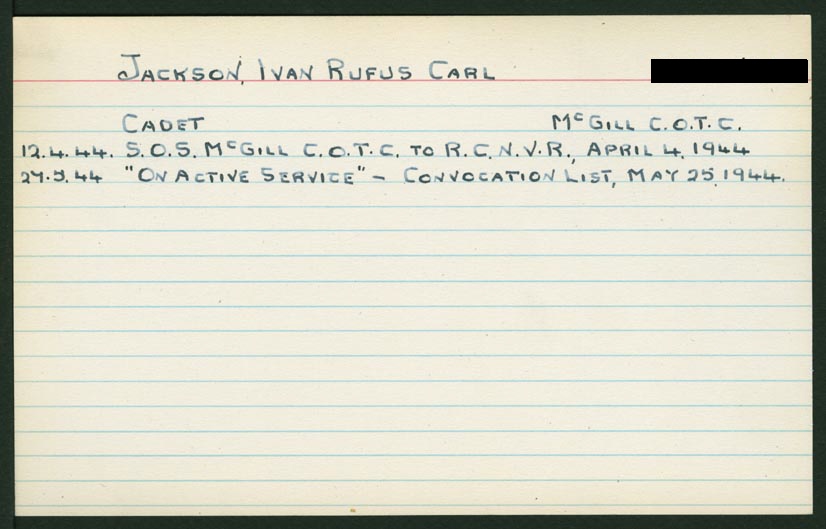 Jackson, Ivan Rufus Carl
Cadet McGill C.O.T.C.
12.4.44. S.O.S. McGill C.O.T.C. to R.C.N.V.R., April 4, 1944
27.5.44 "On Active Service" – Convocation List, May 25, 1944.